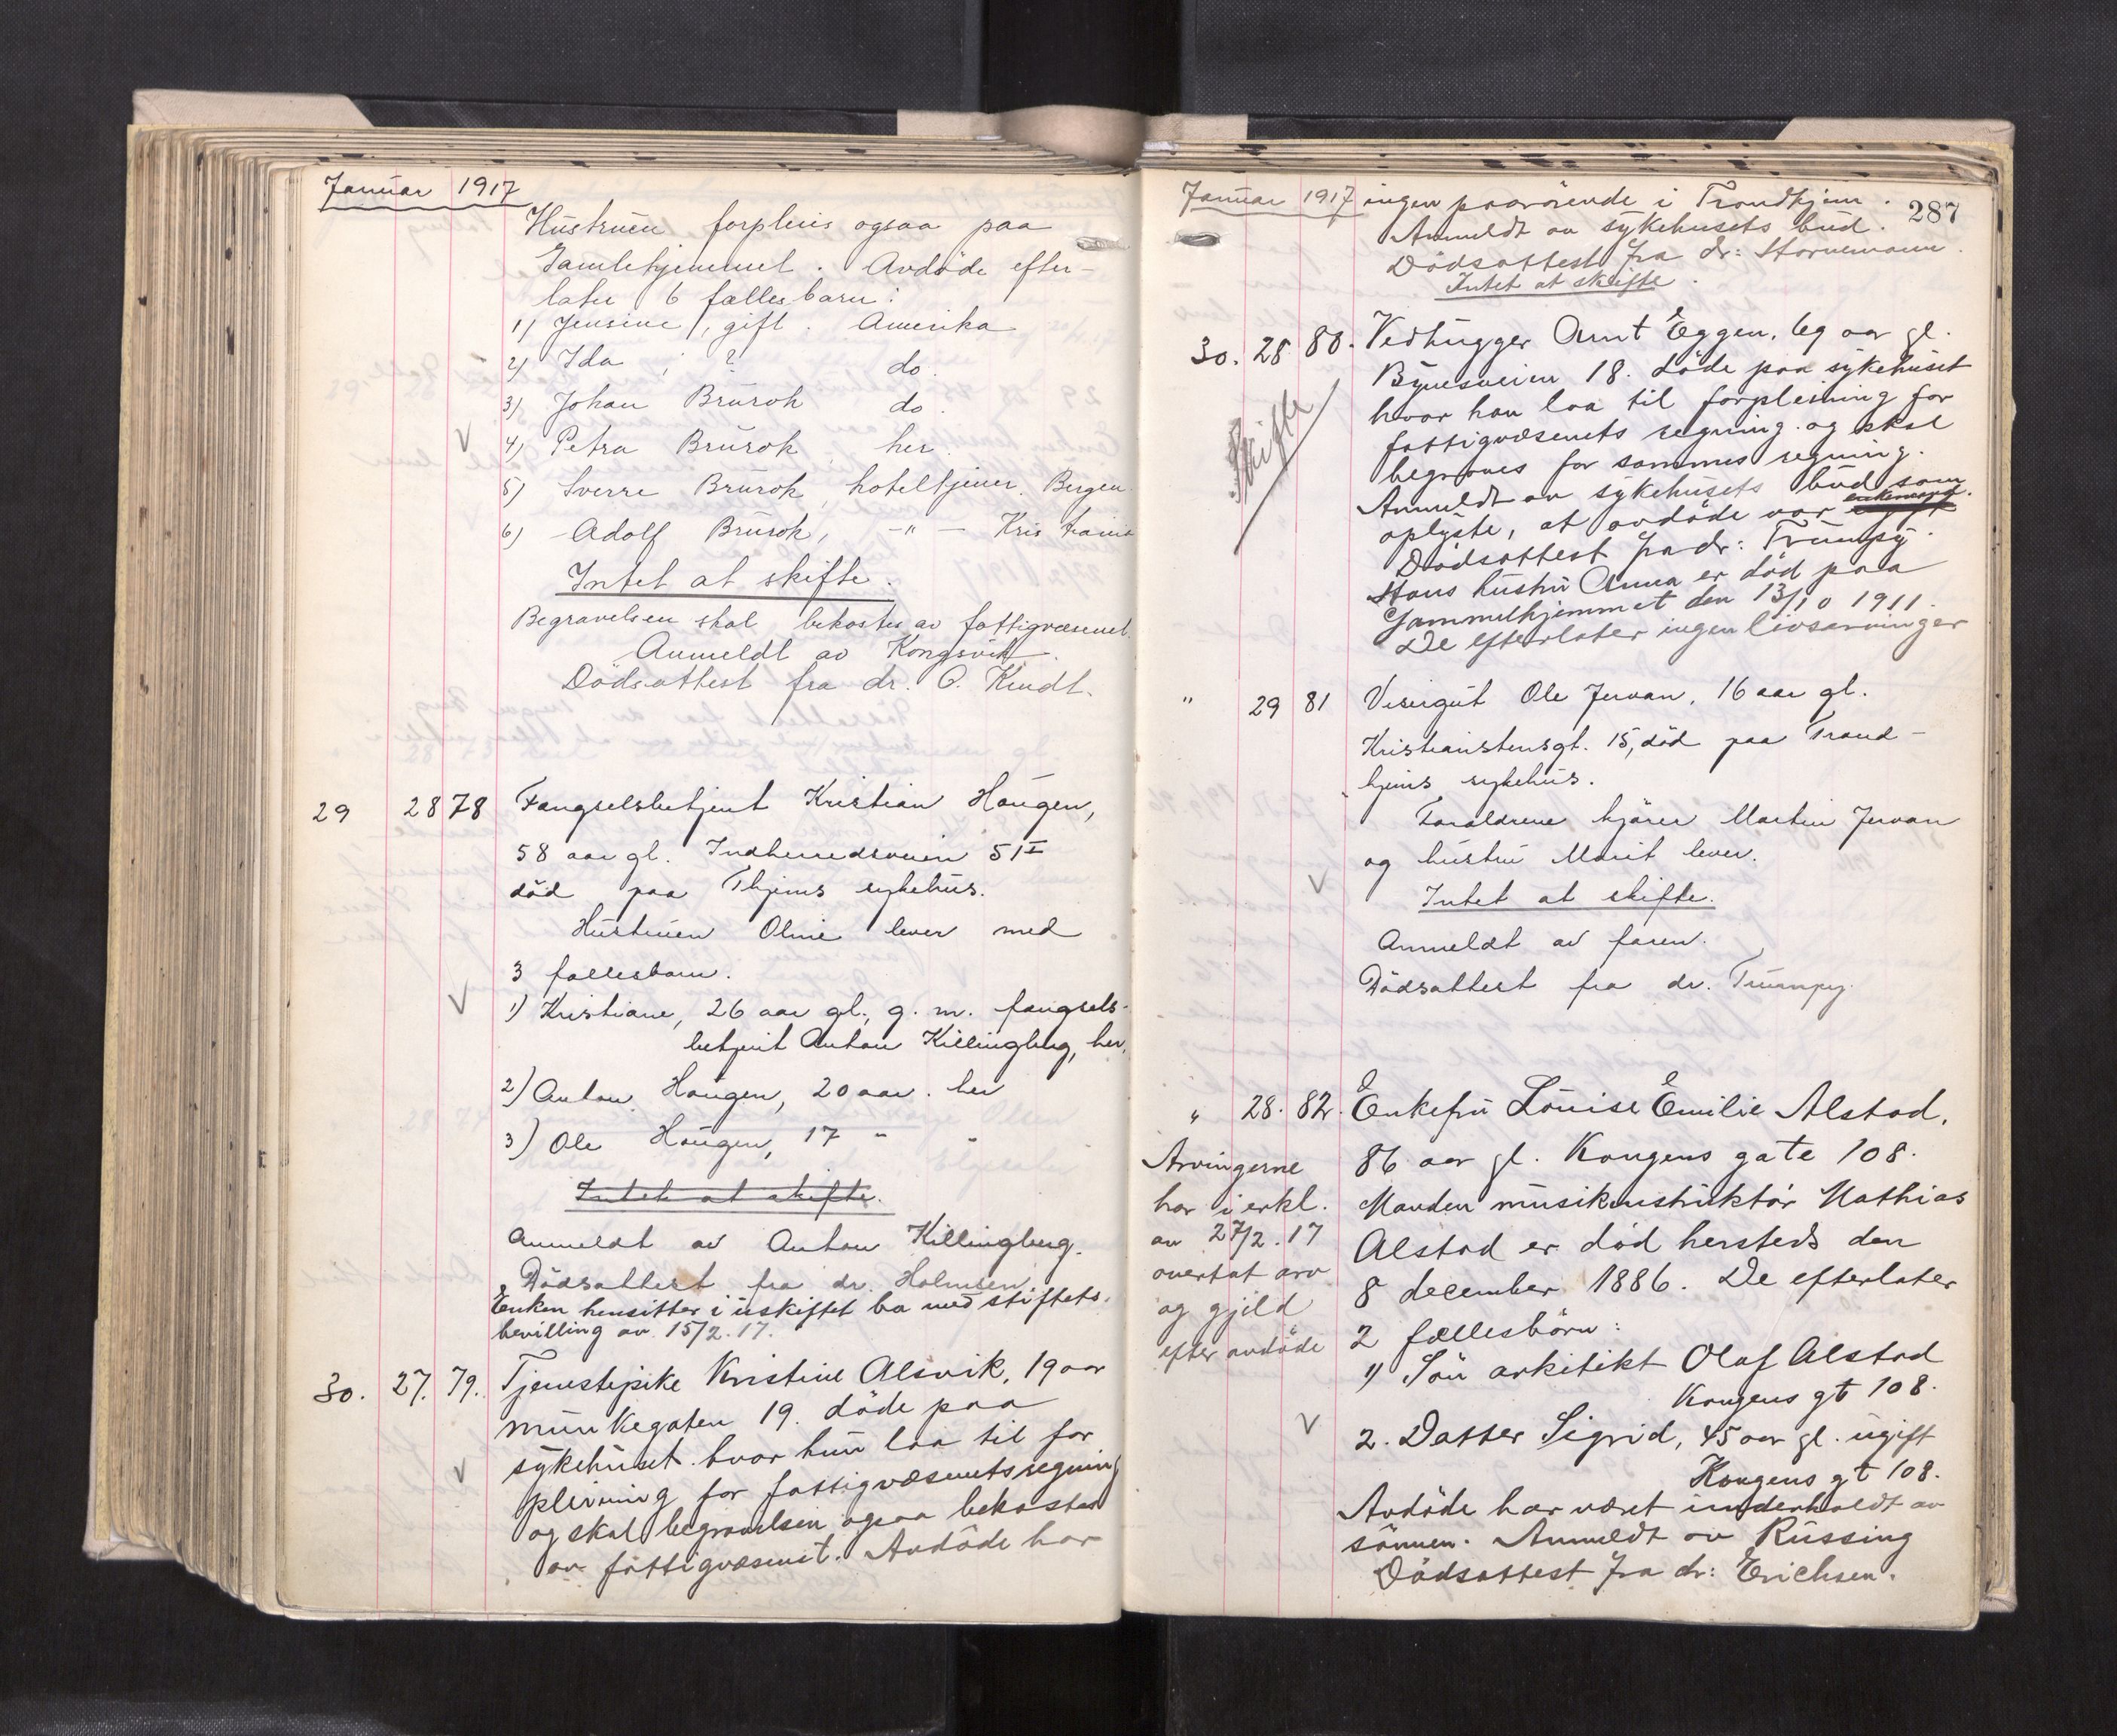 Januar 1917
Hustruen forpleies ogsaa paa
Gamlehjemmet. Avdøde efter-
later 6 fællesbarn:
1) Jensine, gift. Amerika
2) Ida, ? do.
3) Johan Brurok do.
4) Petra Brurok, her.
5) Sverre Brurok, hoteltjener. Bergen.
6) Adolf Brurok, -"- Kristiania
Intet at skifte.
Begravelsen skal bekostes av fattigvæsenet.
Anmeldt av Kongsvik.
Dödsattest fra dr. O. Kindt.
29 28 78 Fængselsbetjent Kristian Haugen,
58 aar gl. Indherredsveien 51 I
död paa Thjems sykehus.
Hustruen Oline lever med
3 fællesbarn.
1) Kristiane, 26 aar gl., g. m. fængsels-
betjent Anton Killingberg, her.
2) Anton Haugen, 20 aar. her
3) Ole Haugen, 17 " "
Intet at skifte.
Anmeldt av Anton Killingberg.
Dödsattest fra dr. Holmsen.
Enken hensitter i uskiftet bo med stiftets-
bevilling av 15/2. 17.
30. 27. 79. Tjenestepike Kristine Alsvik, 19 aar
Munkegaten 19. döde paa
sykehuset. hvor hun laa til for
pleining for fattigvæsenets regning
og skal begravelsen ogsaa bekostes
av fattigvæsenet. Avdöde har
Januar 1917 ingen paarörende i Trondhjem.
287
Anmeldt av sykehusets bud.
Dödsattest fra dr: Stornemann.
Intet at skifte.
30. 28 80. Vedhugger Arnt Eggen, 69 aar gl.
Bynesveien 18. döde paa sykehuset
hvor han laa til forpleining for
fattigvæsenets regning og skal
begraves for sammes regning.
Skifte
Anmeldt av sykehusets bud som
oplyste, at avdöde var ugift enkemand.
Dödsattest fra dr: Trumpy.
Hans hustru Anna er död paa
Gammelhjemmet den 13/10 1911.
De efterlater ingen livsarvinger
" 29 81 Visergut Ole Jervan, 16 aar gl.
Kristianstensgt. 15, död paa Trond-
hjems sykehus.
Forældrene kjörer Martin Jervan
og hustru Marit lever.
Intet at skifte.
Anmeldt av faren.
Dödsattest fra dr. Trumpy.
" 28. 82. Enkefru Louise Emilie Alstad,
86 aar gl. Kongens gate 108.
Manden musikinstruktör Mathias
Alstad er död hersteds den
8 december 1886. De efterlater
2 fællesbörn:
Arvingerne
har i erkl.
av 27/2. 17
overtat arv
og gjæld
efter avdöde
1) Sön arkitekt Olaf Alstad
Kongens gt 108.
2. Datter Sigrid, 45 aar gl. ugift
Kongens gt 108.
Avdöde har været underholdt av
sönnen. Anmeldt av Russing
Dödsattest fra dr: Erichsen.